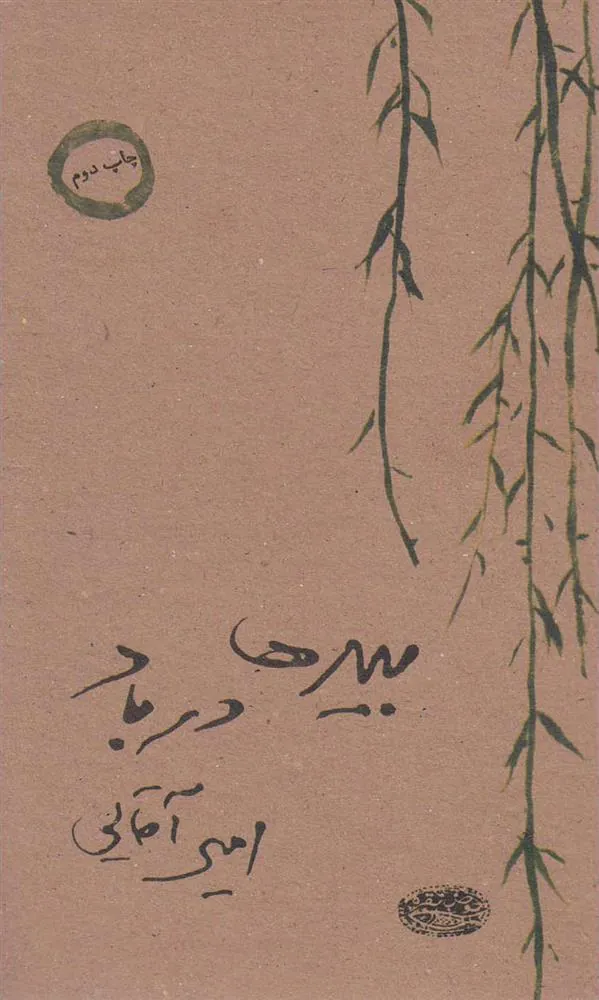 چاپ دوم
بیدها در باد
امیر آقایی